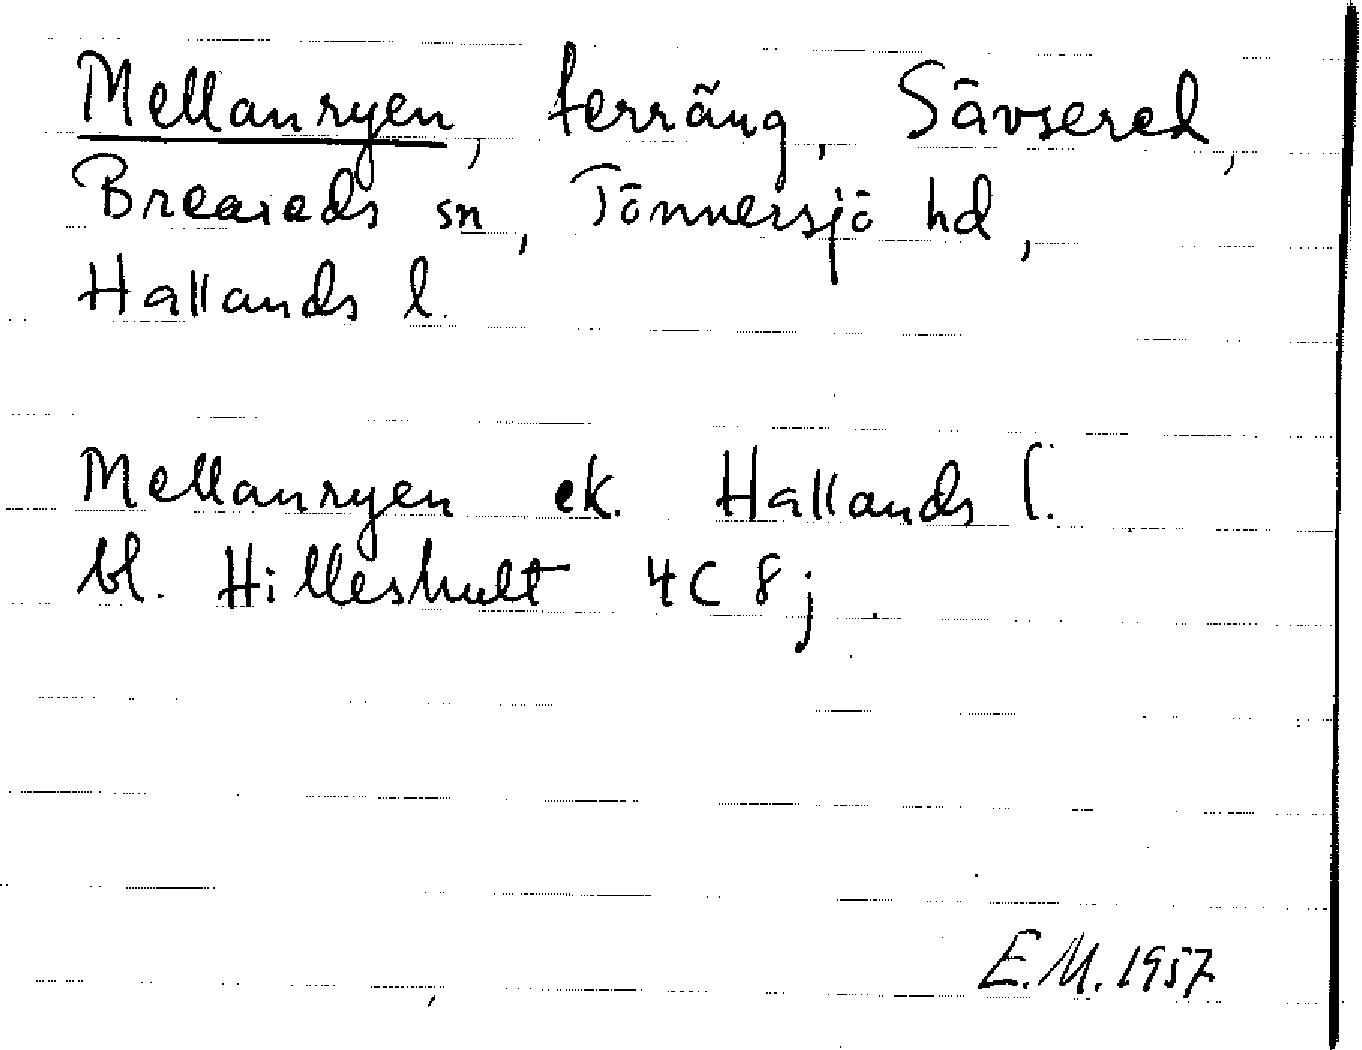 Mellanryen, terräng, Sävsered,
Breareds sn, Tönnersjö hd,
Hallands l.
Mellanryen ek. Hallands l.
bl. Hilleshult 4C 8j.
E.M. 1957